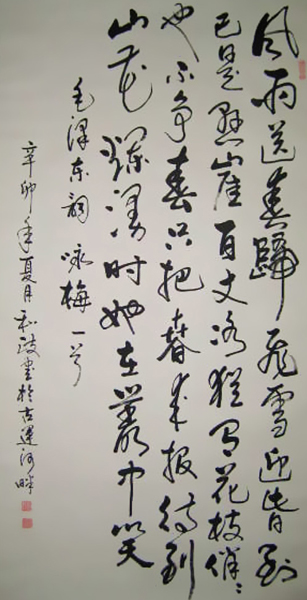 风雨送春歸飛雪迎春到
已是懸崖百丈冰猶有花枝俏々
也不争春只把春来报待到
山花爛漫时她在叢中笑
毛澤东詞咏梅一首
辛卯年夏月和波書於古運河畔